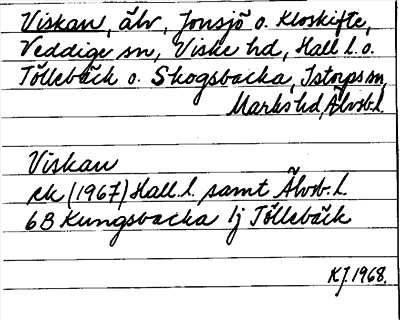 Viskan, älv, Jonsjö o. Kloskifte,
Veddige sn, Viske hd, Hall. l. o.
Töllebäck o. Skogsbacka, Istorps sn,
Marks hd, Älvsb. l.
Viskan
ek (1967) Hall. l. samt Älvsb. l.
6B Kungsbacka 1j Töllebäck
KJ. 1968.